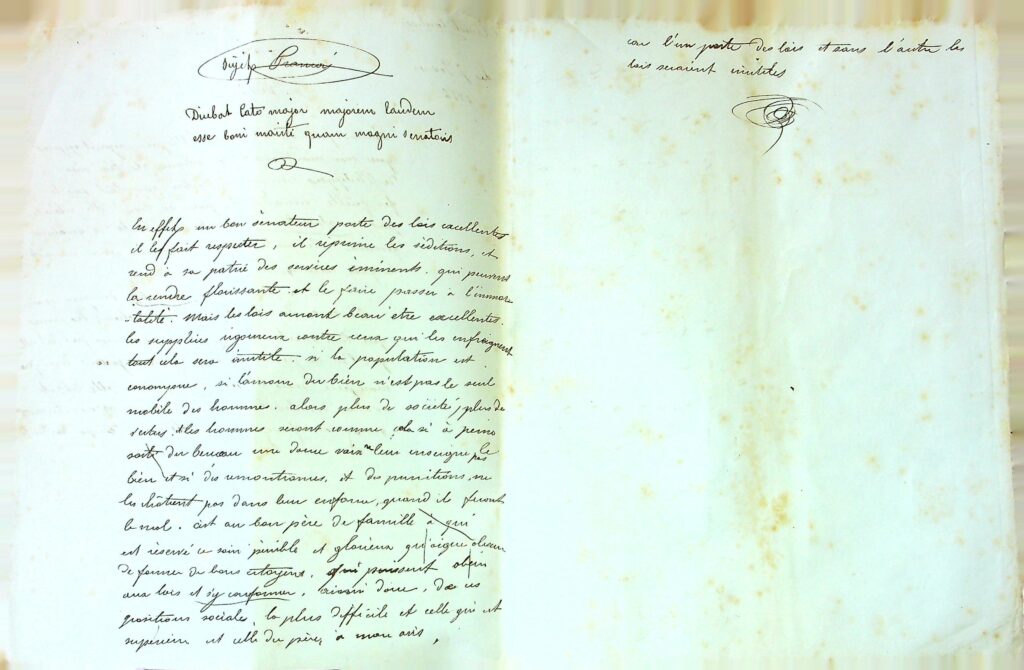 Dicebat Cato major majorem laudem
esse boni mariti quam magni senatoris
En effet, un bon sénateur porte des lois excellentes
il les fait respecter, il reprime les séditions, et
rend à sa patrie des services éminents qui peuvent
la rendre florissante et le faire passer à l'immor
talité. Mais les lois auront beau être excellentes
les supplices rigoureux contre ceux qui les enfraignent
tout cela sera inutile si la population est
, si l'amour du bien n'est pas le seul
mobile des hommes. alors plus de societé, plus de
les hommes seront comme cela si à peine
du berceau une douce voix ne leur enseigne pas le
bien et si des remontrances, et des punitions, ne
les châtient pas dans leur enfance, quand ils feront
le mal. c'est au bon père de famille à qui
est réservé ce soin pénible et glorieux
de former de bons citoyens, qui puissent obéir
aux lois et s'y conformer, ainsi donc, de ces
positions sociales, la plus difficile et celle qui est
supérieur est celle du père, à mon avis,
car l'un porte des lois et sans l'autre les
lois seraient inutiles